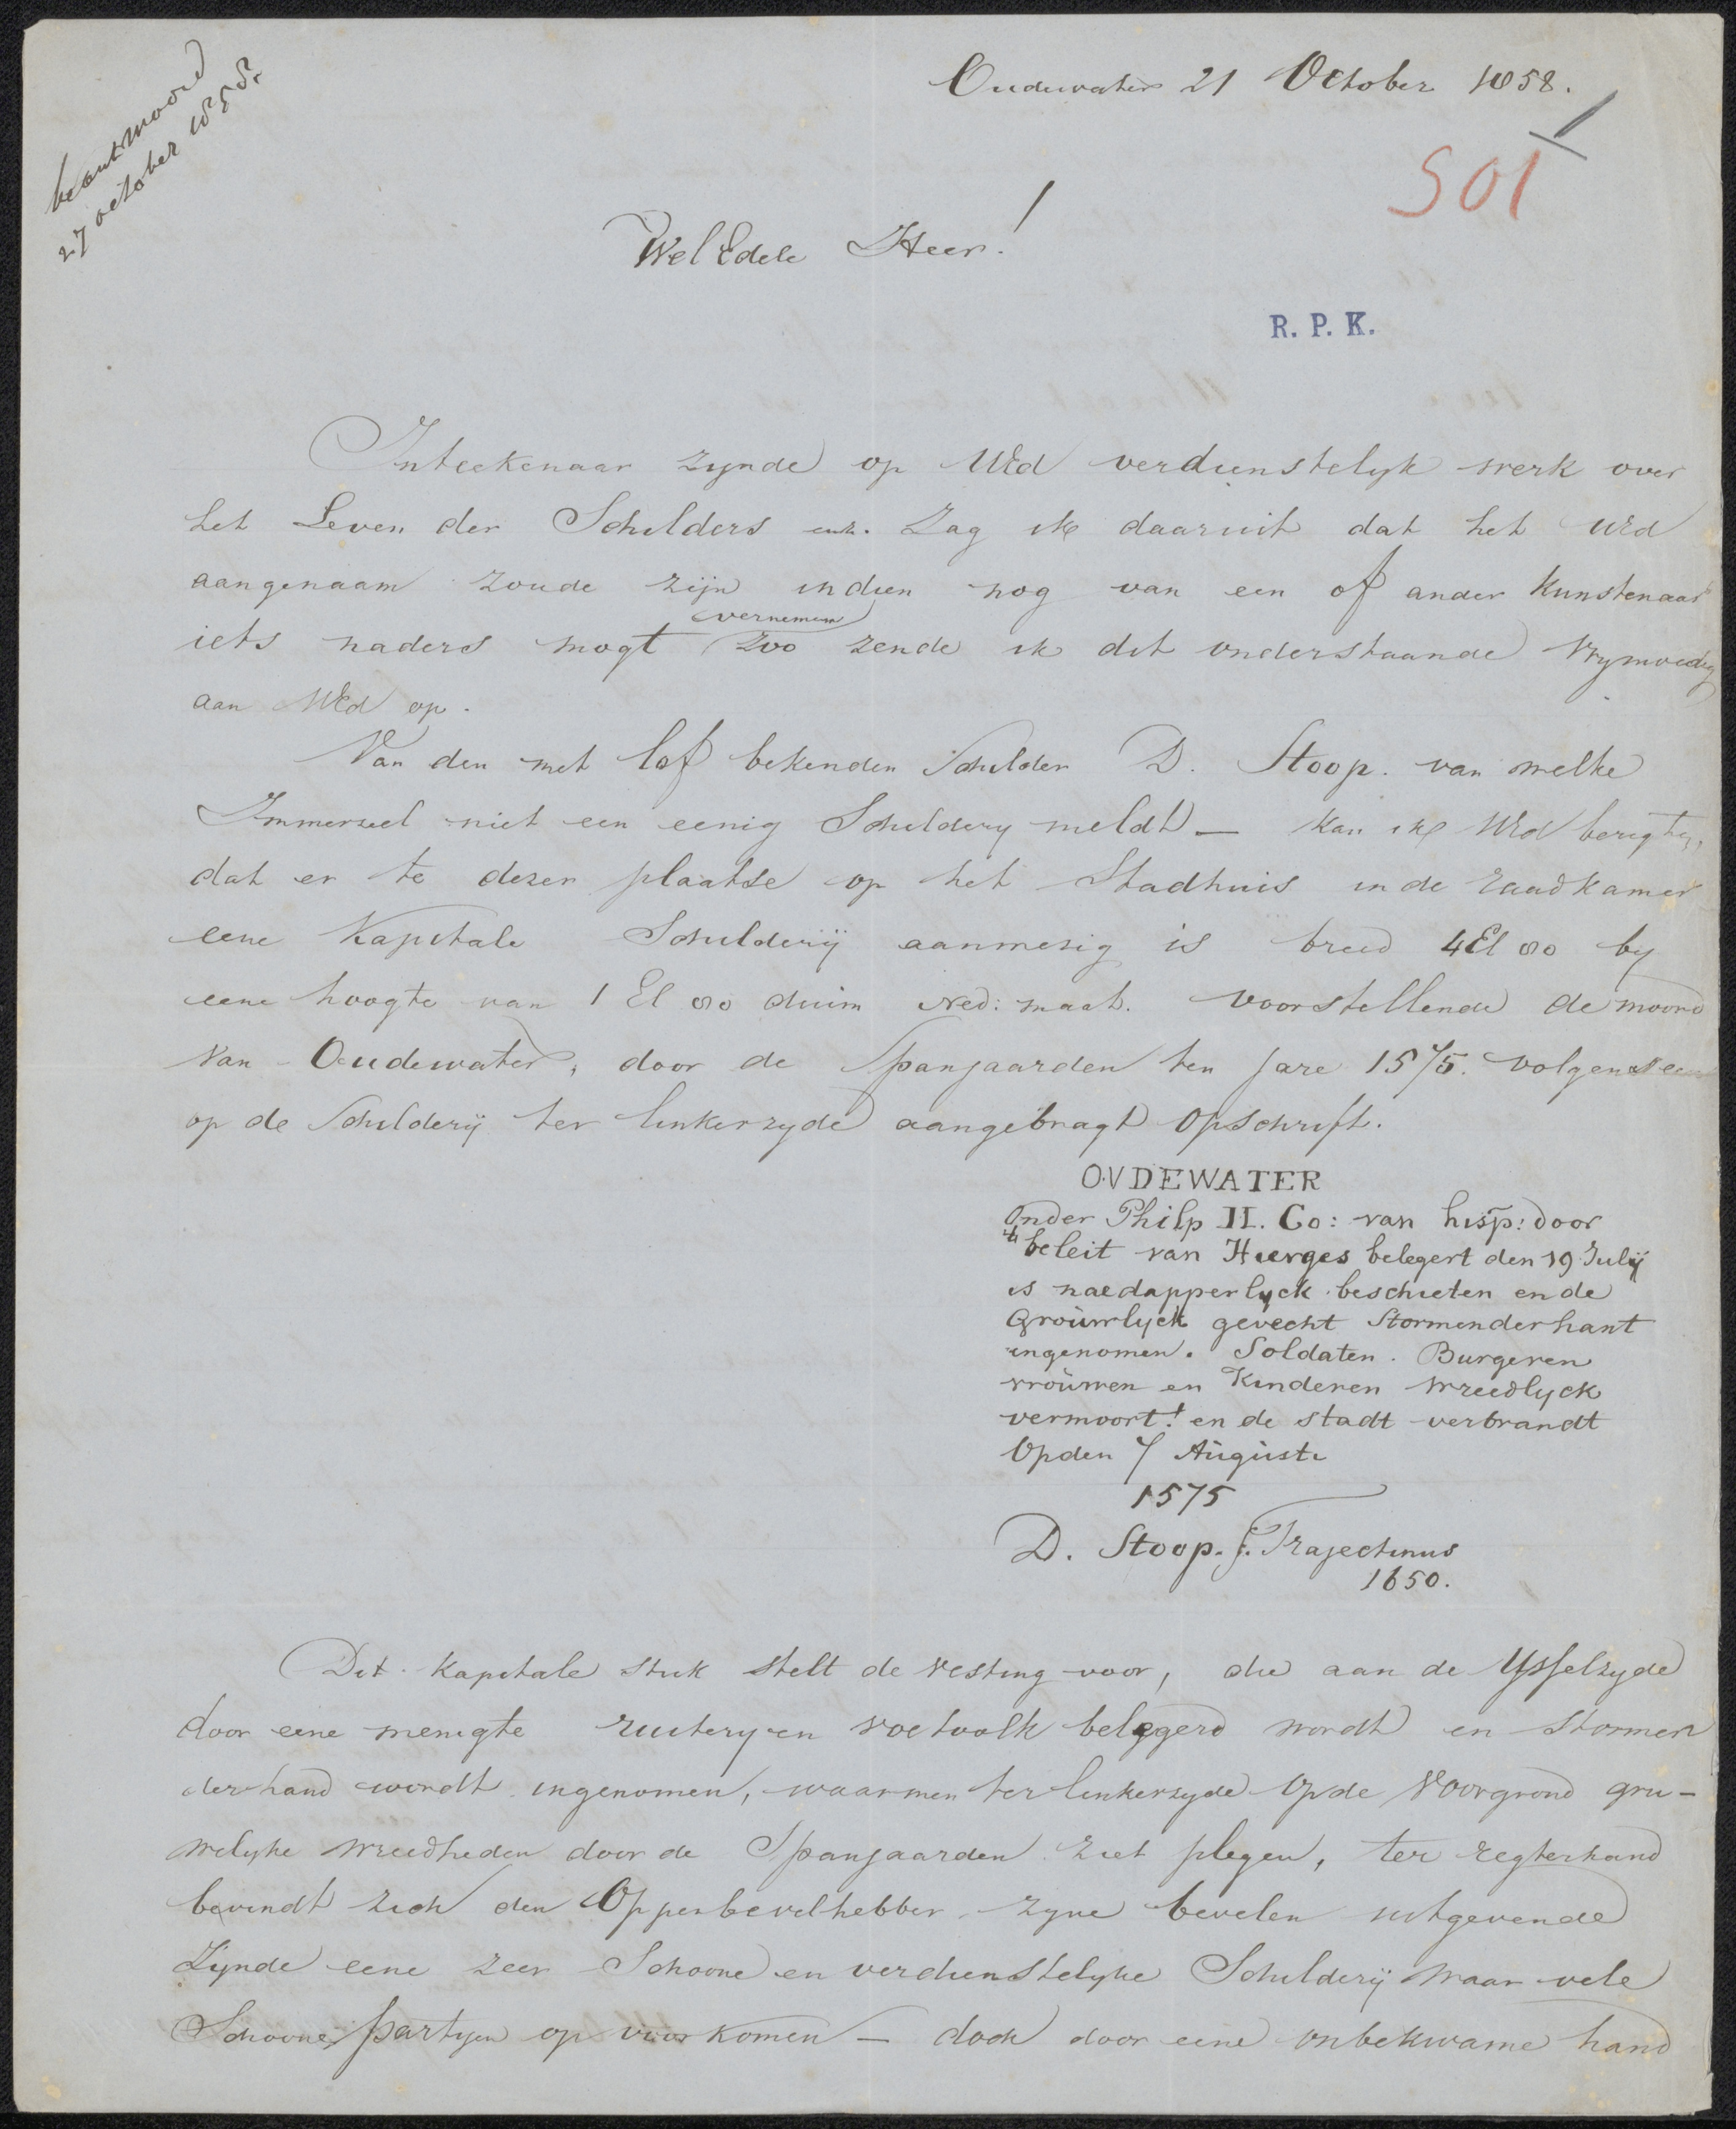 beantwoord
27 october 1858.
Oudewater 21 October 1858.
501
WelEdele Heer!
R. P. K.
Inteekenaar zynde op UEd verdienstelyk werk over
het Leven der Schilders enz. zag ik daaruit dat het UEd
aangenaam zoude zijn indien nog van een of ander Kunstenaar
iets naders mogt vernemen zoo zende ik dit onderstaande vrymoedig
aan UEd op.
Van den met lof bekenden Schilder D. Stoop. van welke
Immerzeel niet een eenig Schildery meldt — kan ik UEd berigten,
dat er te dezer plaatse op het Stadhuis in de raadkamer
eene Kapitale Schilderij aanwezig is breed 4 El 80 by
eene hoogte van 1 El 80 duim Ned: maat. voorstellende de moord
van Oudewater, door de Spanjaarden ten jare 1575. volgens een
op de Schilderij ter linkerzyde aangebragt Opschrift.
OVDEWATER
Onder Philp II. Co: van hisp: door
't beleit van Hierges belegert den 19 Julij
is naedapperlyck beschieten ende
Groùwlyck gevecht Stormenderhant
ingenomen. Soldaten. Burgeren
vroùwen en Kinderen wreedlyck
vermoort! en de stadt verbrandt
Opden 7 Aùgùsti
1575
D. Stoop. f. Trajectinus
1650.
Dit Kapitale stuk stelt de vesting voor, die aan de Ysselzyde
door eene menigte ruitery en voetvolk belegerd wordt en stormen
derhand wordt ingenomen, waarmen ter linkerzyde op de Voorgrond gru-
welyke wreedheden door de Spanjaarden ziet plegen, ter regterhand
bevindt zich den Opperbevelhebber zyne bevelen uitgevende
Zijnde eene zeer Schoone en verdienstelyke Schilderij waar vele
Schoone partyen op voorkomen — doch door eene onbekwame hand